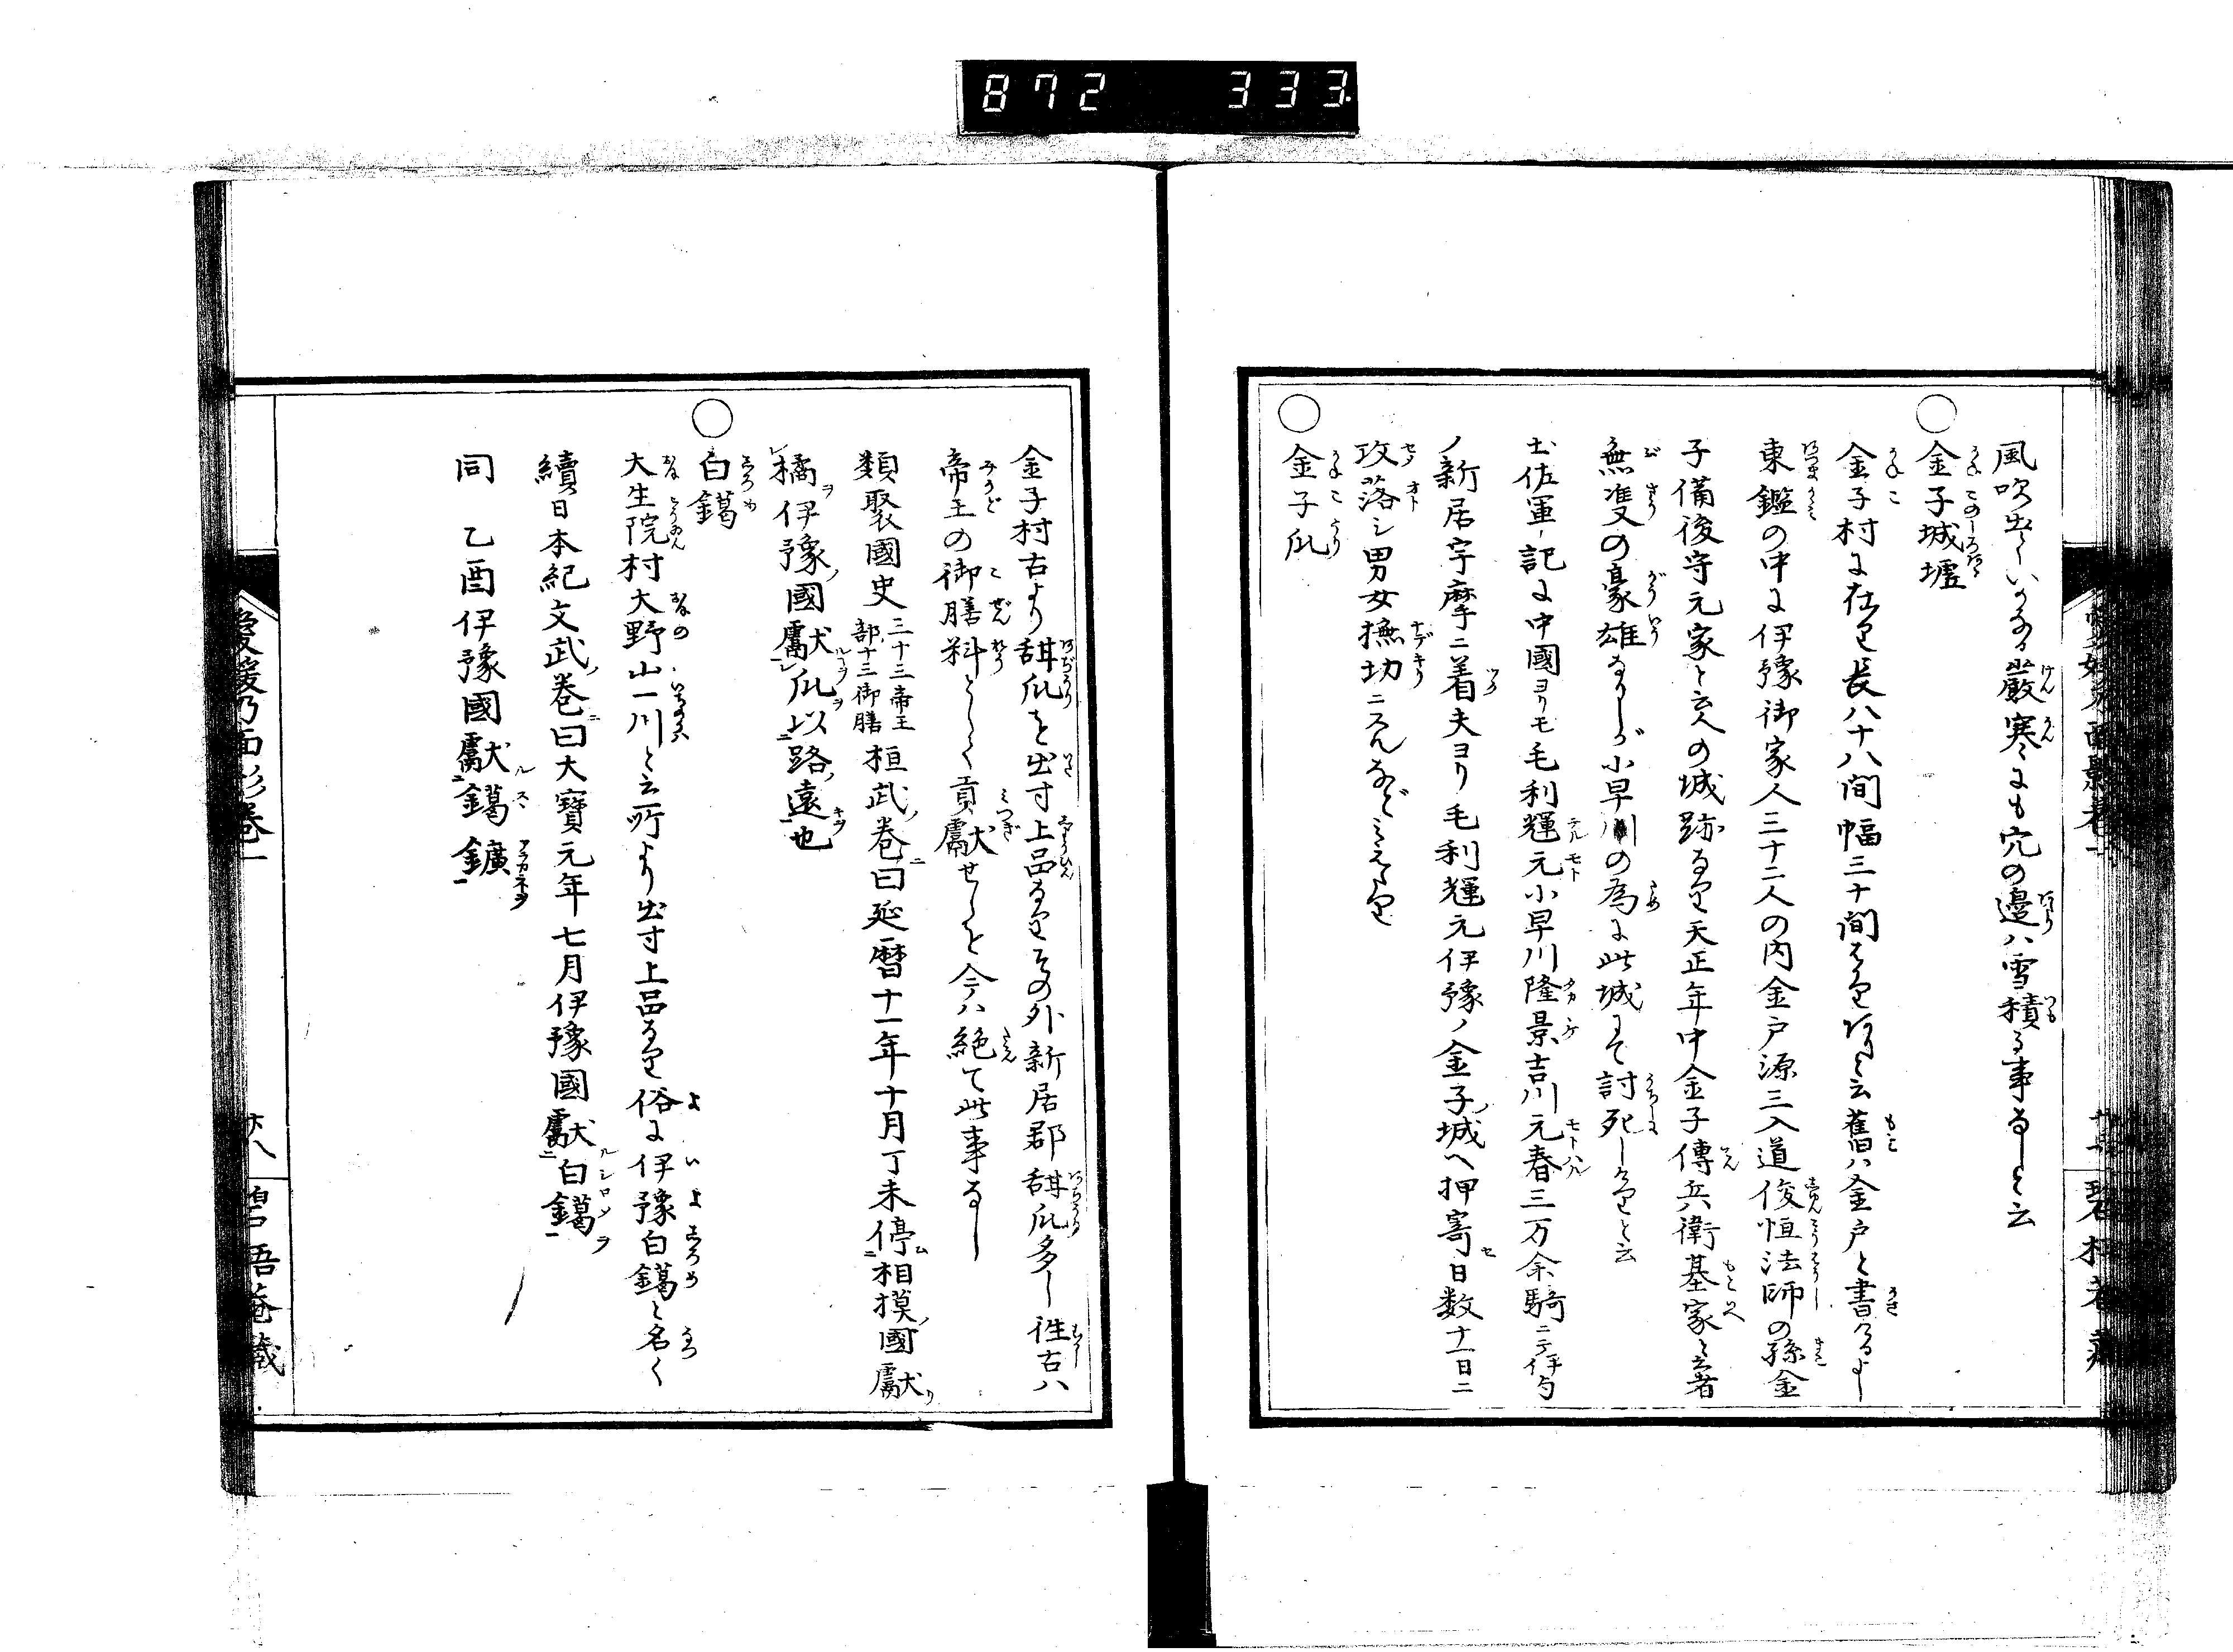 872 333
風吹出ていかなる嚴寒にも穴の邊ハ雪積る事なしと云
○金子城墟
金子村に在り長八十八間幅三十間はかりありと云舊ハ金戸と書けるよし
東鑑の中に伊豫御家人三十二人の内金戸源三入道俊恒法師の孫金
子備後守元家と云人の城跡なり天正年中金子傳兵衛基家と云者
無雙の豪雄なりしが小早川の為に此城にて討死しけりと云
土佐軍記に中國ヨリモ毛利輝元小早川隆景吉川元春三万余騎ニテ伊勺
ノ新居宇摩ニ着夫ヨリ毛利輝元伊豫ノ金子ノ城ヘ押寄日数十一日ニ
攻落シ男女撫切ニスんなどみえたり
○金子瓜
金子村古より甜瓜を出す上品なりその外新居郡甜瓜多し徃古ハ
帝王の御膳料として貢獻せしを今ハ絶て此事なし
類聚國史三十三帝王部十三御膳桓武ノ巻ニ曰延暦十一年十月丁未停相摸ノ國獻
橘伊豫ノ國獻瓜以路ノ遠也
○白鑞
大生院村大野山一川と云所より出す上品なり俗に伊豫白鑞と名く
續日本紀文武ノ巻ニ曰大寶元年七月伊豫國獻白鑞
同 乙酉伊豫國獻鑞鑛
愛媛乃面影巻一
廿八
碧梧菴藏